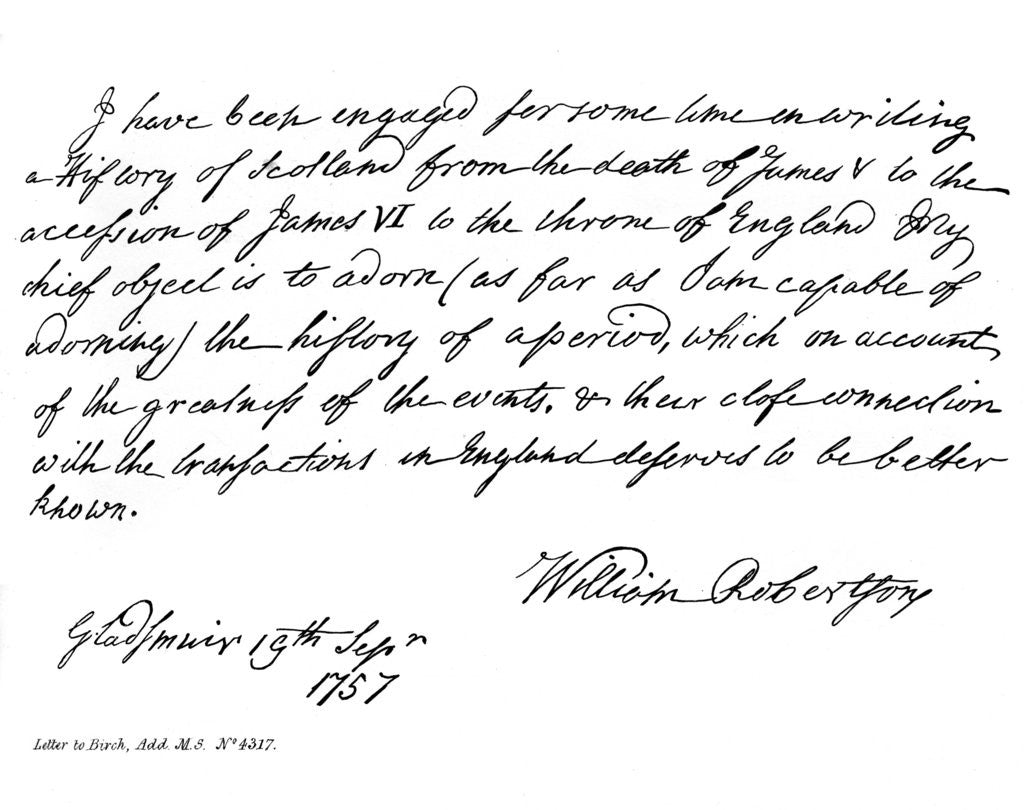 I have been engaged for some time in writing
a History of Scotland from the death of James V to the
accession of James VI to the throne of England My
chief object is to adorn (as far as I am capable of
adorning) the history of a period, which on account
of the greatness of the events. & their close connection
with the transactions in England deserves to be better
known.
William Robertson
Gladsmuir 19th Sepr
1757
Letter to Birch, Add. M.S. No 4317.